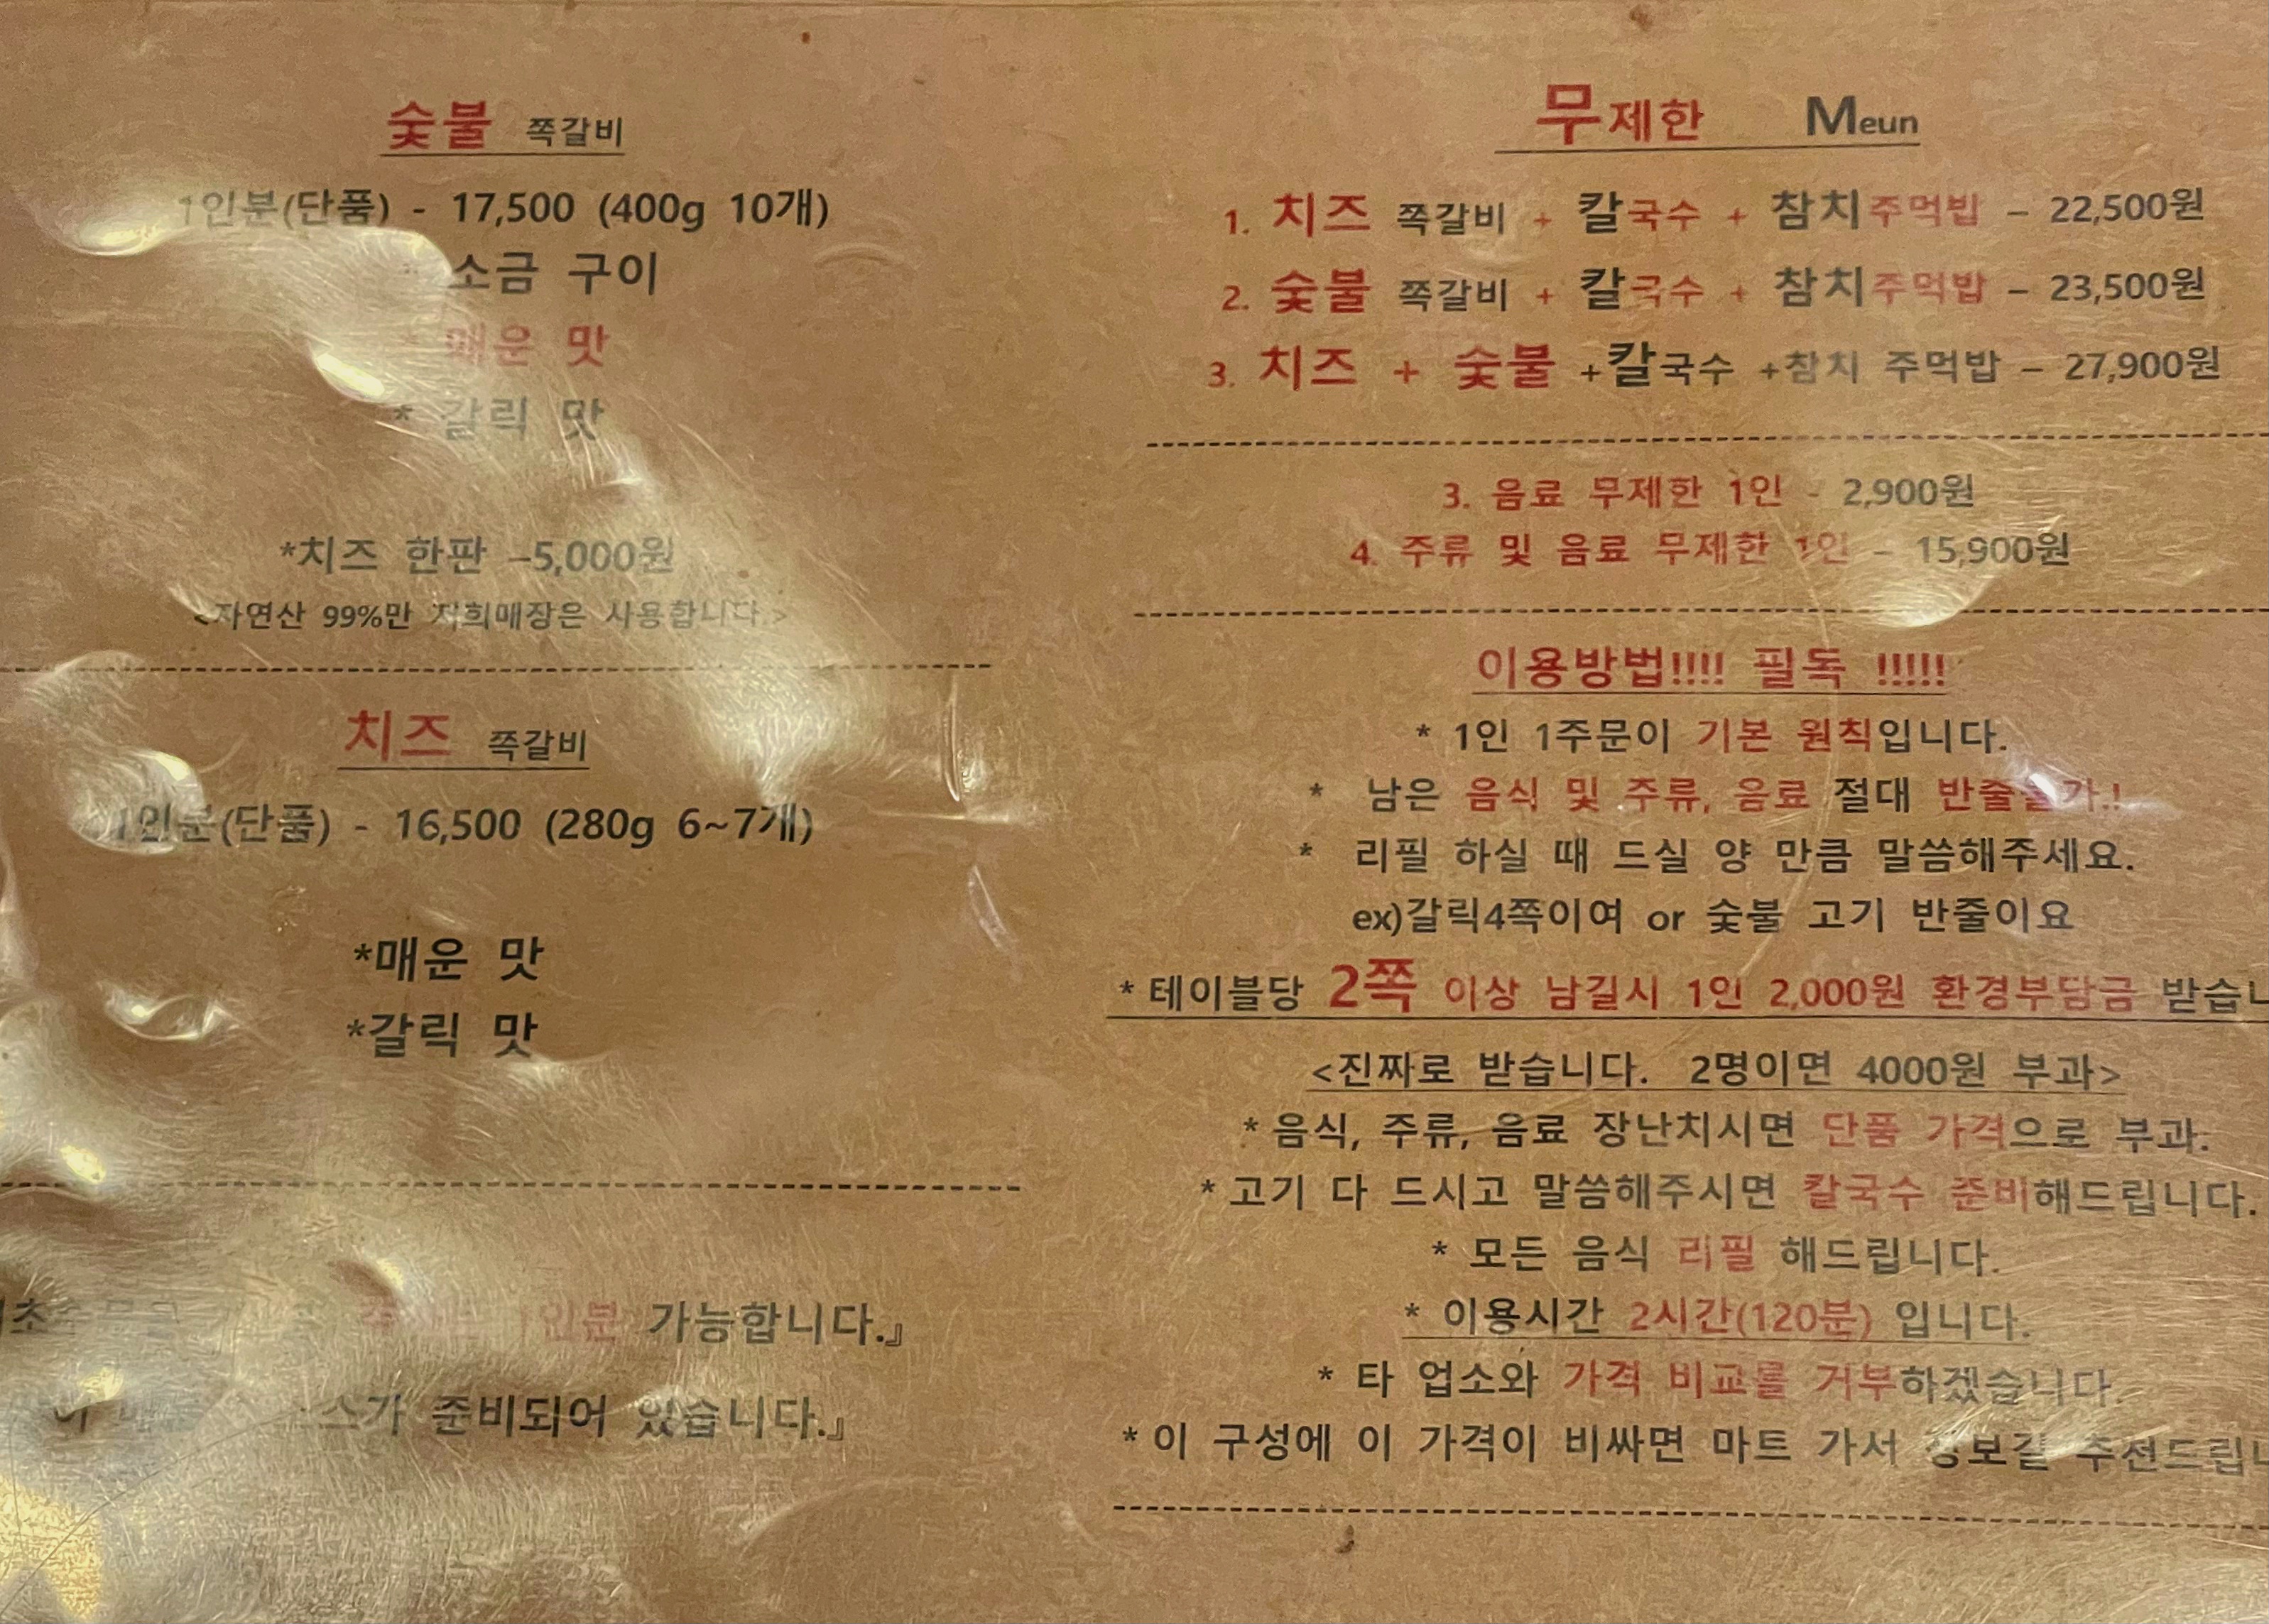 숯불 쪽갈비
1인분(단품) - 17,500 (400g 10개)
소금 구이
매운 맛
* 갈릭 맛
*치즈 한판 –5,000원
<자연산 99%만 저희매장은 사용합니다.>
치즈 쪽갈비
1인분(단품) - 16,500 (280g 6~7개)
*매운 맛
*갈릭 맛
가능합니다.』
준비되어 있습니다.』
무제한 Meun
1. 치즈 쪽갈비 + 칼국수 + 참치주먹밥 – 22,500원
2. 숯불 쪽갈비 + 칼국수 + 참치주먹밥 – 23,500원
3. 치즈 + 숯불 +칼국수 +참치 주먹밥 – 27,900원
3. 음료 무제한 1인 - 2,900원
4. 주류 및 음료 무제한 1인 – 15,900원
이용방법!!!! 필독 !!!!!
* 1인 1주문이 기본 원칙입니다.
* 남은 음식 및 주류, 음료 절대 반출불가.!
* 리필 하실 때 드실 양 만큼 말씀해주세요.
ex)갈릭4쪽이여 or 숯불 고기 반줄이요
* 테이블당 2쪽 이상 남길시 1인 2,000원 환경부담금 받습
<진짜로 받습니다. 2명이면 4000원 부과>
* 음식, 주류, 음료 장난치시면 단품 가격으로 부과.
* 고기 다 드시고 말씀해주시면 칼국수 준비해드립니다.
* 모든 음식 리필 해드립니다.
* 이용시간 2시간(120분) 입니다.
* 타 업소와 가격 비교를 거부하겠습니다.
* 이 구성에 이 가격이 비싸면 마트 가서 장보길 추천드립